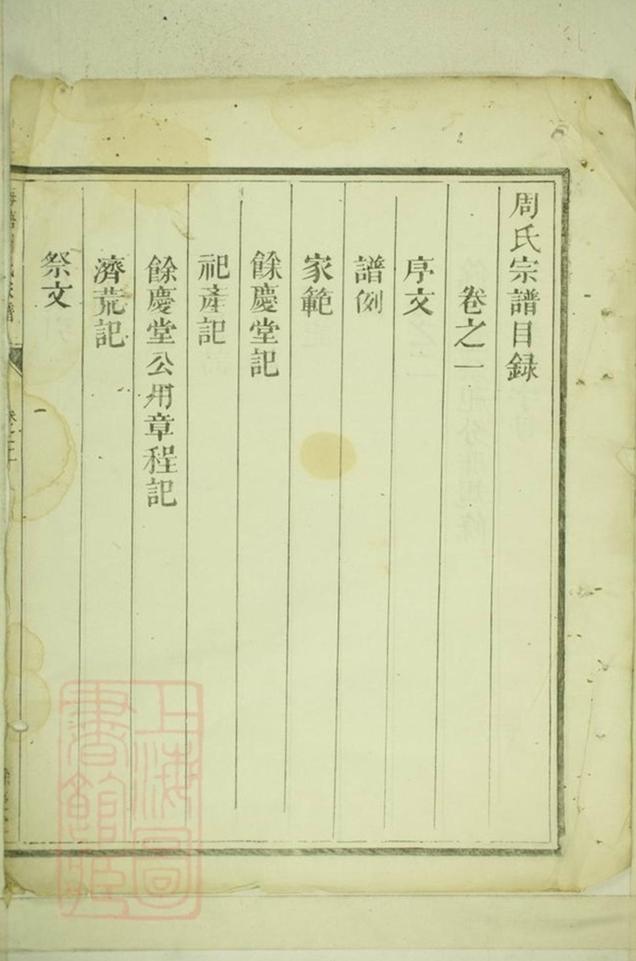 周氏宗譜目録
卷之一
序文
譜例
家範
餘慶堂記
祀產記
餘慶堂公用章程記
濟荒記
祭文
上海圖書館藏